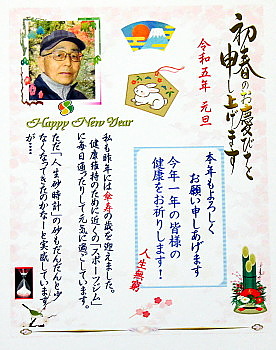 初春のお慶びを
申し上げます
令和五年 元旦
Happy New Year
本年もよろしく
お願い申しあげます
今年一年の皆様の
健康をお祈りします！
人生無窮
私も昨年には傘寿の歳を迎えました。
健康維持のために近くの「スポーツジム」
に毎日通ったりして元気に過ごしています。
ただ「人生砂時計」の砂もだんだんと少
なくなってきたのかなーと実感しています
が…。